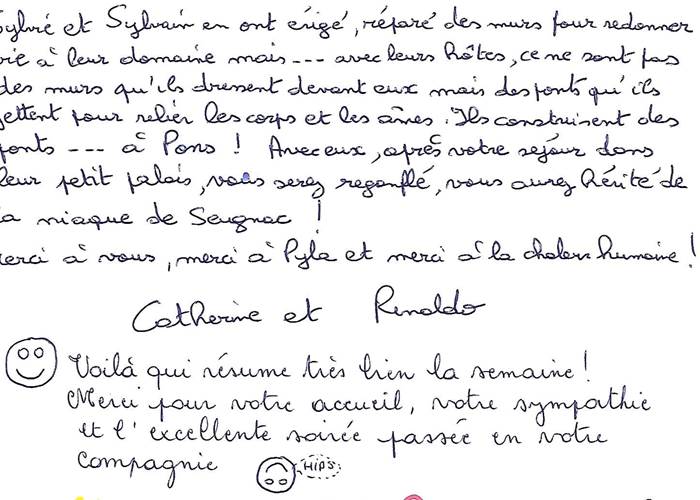 Sylvie et Sylvain en ont érigé, réparé des murs pour redonner
vie à leur domaine mais --- avec leurs hôtes, ce ne sont pas
des murs qu'ils dressent devant eux mais des ponts qu'ils
jettent pour relier les corps et les âmes. Ils construisent des
ponts --- à Pons ! Avec eux, après votre séjour dans
leur petit palais, vous serez regonflé, vous aurez hérité de
la niaque de Seugnac !
merci à vous, merci à Pyla et merci à la chaleur humaine !
Catherine et Renaldo
Voilà qui résume très bien la semaine !
Merci pour votre accueil, votre sympathie
et l'excellente soirée passée en votre
compagnie HIPS